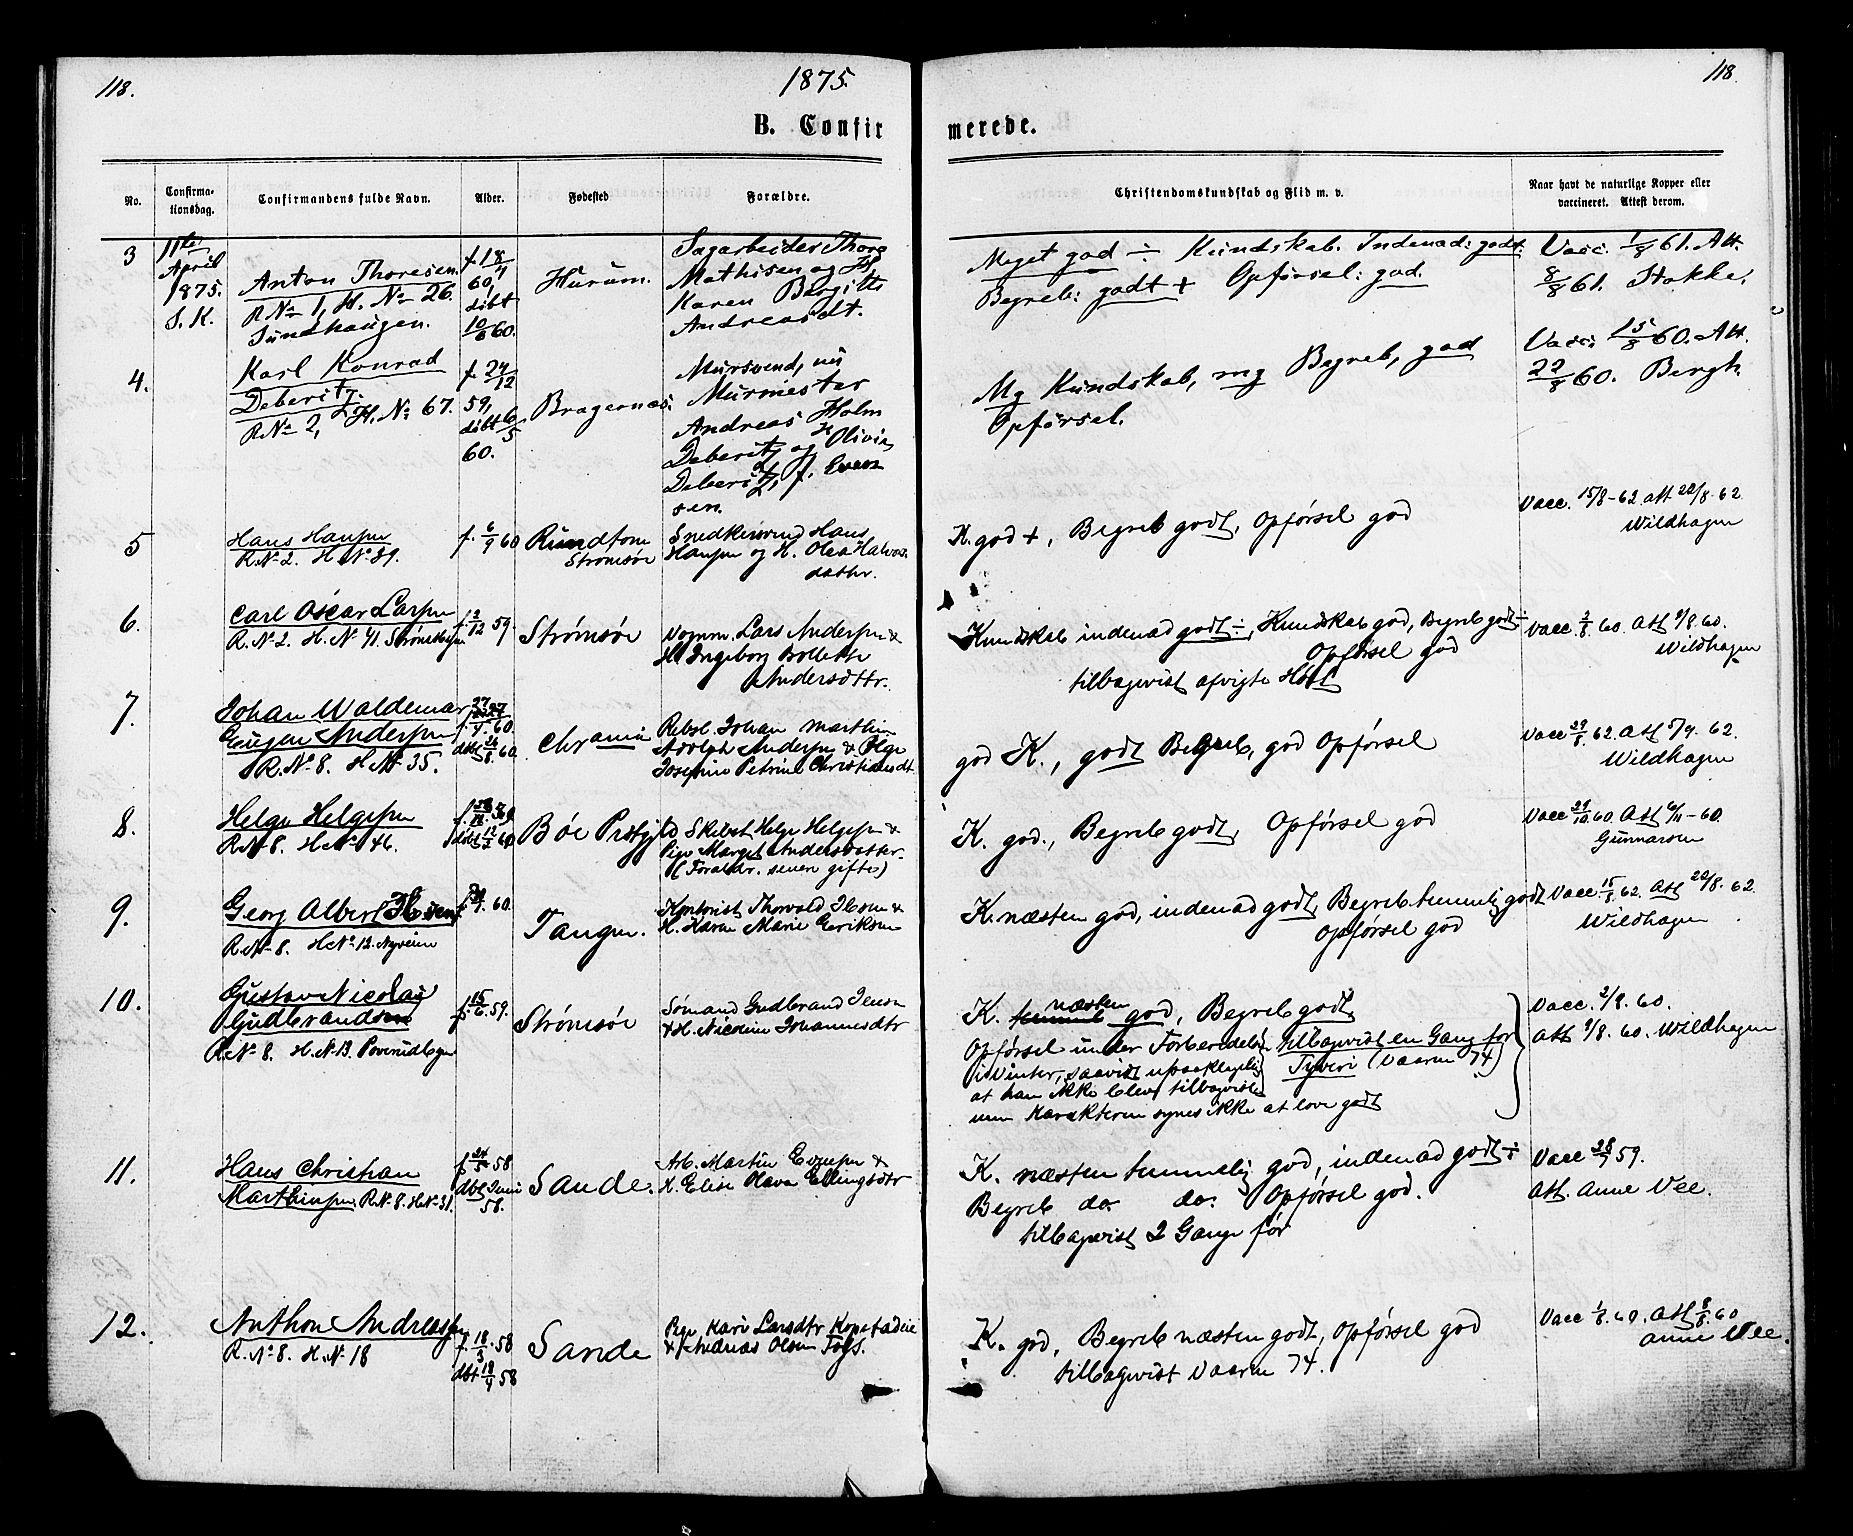 118.
1875.
118.
B. Confir
merede.
No.
Confirma-
tionsdag.
Confirmandens fulde Navn.
Alder.
Fødested
Forældre.
Christendomskundskab og Flid m. v.
Naar havt de naturlige Kopper eller
vaccineret. Attest derom.
3
11te
April
1875.
S. K.
Anton Thoresen.
R No 1, H. No 26.
Sundhaugen.
f. 18/4
60,
döbt
10/6 60.
Hurum.
Sagarbeider Thore
Mathisen og H
Karen Birgitte
Andreasdt.
Meget god ÷ Kundskab. Indenad: godt.
Begreb: godt + Opførsel: god.
Vacc. 1/8 61. Att.
8/8 61. Stokke.
4.
Karl Konrad
Deberitz.
R No 2, H. No 67.
f. 24/12
59,
döbt 6/5
60.
Bragernes.
Mursvend, nu
Murmester
Andreas Holm
Deberitz og H Olivia
Deberitz, f. Even
sen.
Mg Kundskab, mg Begreb, god
Opførsel.
Vacc. 15/8 60. Att.
22/8 60. Bergh.
5
Hans Hansen
R. No 2. H No 39.
f. 6/9 60
Rundtom
Strømsöe
Snedkersvend Hans
Hansen og H. Olea Halvors
datter.
K. god +, Begreb godt, Opførsel god
Vacc. 15/8-62. att 22/8. 62
Wildhagen
6.
Carl Oscar Larsen
R. No 2. H. No 41.
f. 2/12 59.
Strømsöe
Vognm. Lars Andersen &
H. Ingeborg Bollette
Andersdttr.
Kundskab indenad godt ÷, Kundskab god, Begreb godt ÷
Opførsel god
tilbagevist afvigte Høst
Vacc. 2/8. 60. Att 9/8. 60.
Wildhagen
7.
Johan Waldemar
Eugen Andersen
R. No 8. H No 35.
60
60.
Chrania
Rebsl. Johan Marthin
Adolph Andersen & Pige
Josephine Petrine Christiansdt.
god K., godt Begreb, god Opførsel
Vacc 29/8. 62. Att 5/9. 62.
Wildhagen
8.
Helge Helgesen
R. No 8. H. No 46.
Bøe Prstgjld
Skibst. Helge Helgesen &
Pige Margit Andersdatter.
(Foraldr. senere gifte)
K. god., Begreb godt, Opførsel god
Vacc 29/10 60. Att 6/11-60.
Gunnarsen
9.
Georg Albert Ibsen
R. No 8. H No 12. Nyveien
60.
Tangen.
Kontorist Thorvald Ibsen &
H. Karen Marie Eriksen
K. næsten god, indenad godt, Begreb temmelig godt
Opførsel god
Vacc 15/8. 62. Att 22/8. 62.
Wildhagen
10.
Gustav Nicolai
Gudbrandsen
R. No 8. H. No 13.
f. 15/6. 59.
Strømsöe
Sömand Gudbrand Jensen
& H. Nicoline Johannesdtr
næsten
K. temmel. god, Begreb godt
Opførsel under Forberedels.
tilbagevist en Gang før
i Vinter, saavidt upaaklagelig
Tyveri (Vaaren 74)
at han ikke blev tilbagevist
men Karakteren synes ikke at love godt
Vacc. 2/8. 60.
Att 9/8. 60. Wildhagen
11.
Hans Christian
Marthinsen. R. No 8. H No 31.
f. 24/5 58
döbt Juni
58.
Sande.
Arb. Martin Evensen &
H. Elise Olava Ellingsdtr
K. næsten temmelig god, indenad godt ÷
Begreb do. do. Opførsel god.
tilbagevist 2 Gange før
Vacc 28/7 59.
Att. Anne Vee.
12.
Anthon Andreassen
R. No 8. H. No 18
f. 18/3. 58
döbt 18/4 58
Sande
Pige Kari Larsdtr Kopstadeie
& Andreas Olsen
K. god, Begreb næsten godt, Opførsel god
tilbagevist Vaaren 74.
Vacc 1/8. 60. Att 8/8. 60
Anne Vee.